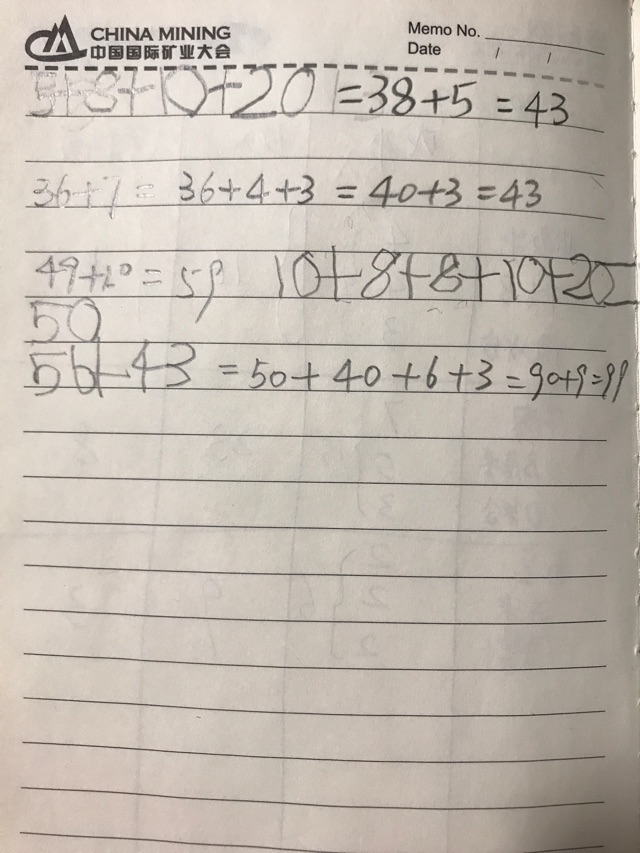 CHINA MINING
中国国际矿业大会
Memo No.
Date / /
5+8+10+20 =38+5 = 43
36+7 = 36+4+3 = 40+3 =43
49+10 = 59 10+8+8+10+20=
50
56+43 = 50+40+6+3=90+9=99